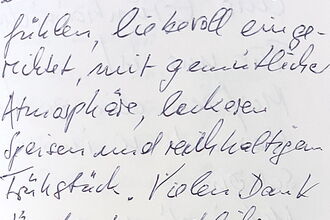 fühlen, liebevoll einge-
richtet, mit gemütlicher
Atmosphäre, leckeren
Speisen und reichhaltigem
Frühstück. Vielen Dank